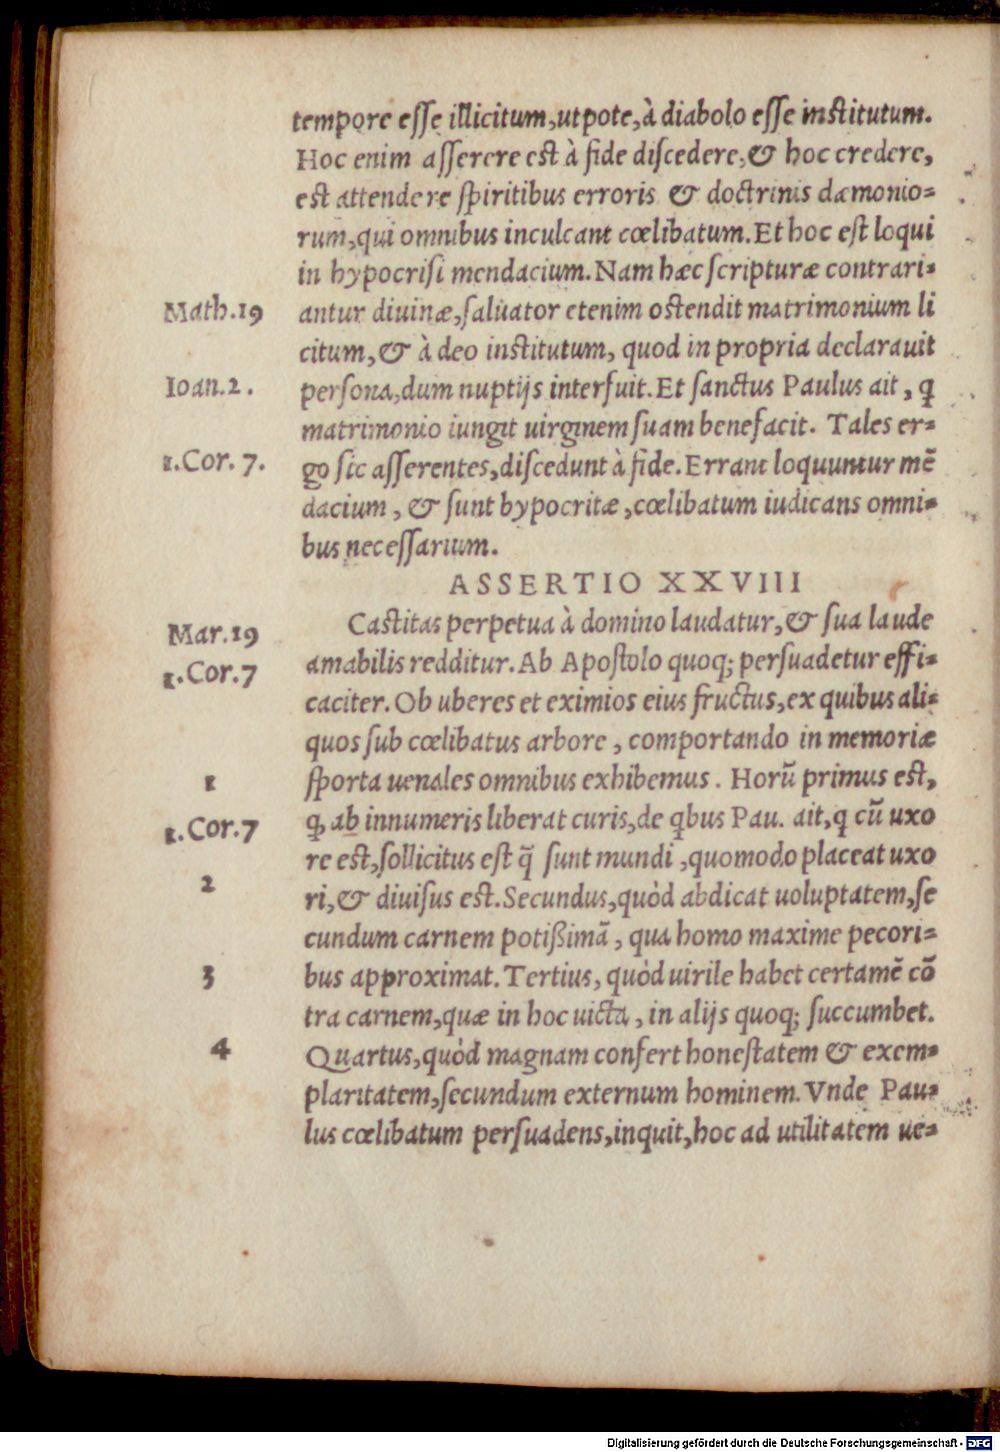 tempore esse illicitum, utpote, à diabolo esse institutum.
Hoc enim asserere est à fide discedere, & hoc credere,
est attendere spiritibus erroris & doctrinis dæmonio=
rum, qui omnibus inculcant cœlibatum. Et hoc est loqui
in hypocrisi mendacium. Nam hæc scripturæ contrari=
Math.19
antur diuinæ, saluator etenim ostendit matrimonium li
citum, & à deo institutum, quod in propria declarauit
Ioan.2.
persona, dum nuptijs interfuit. Et sanctus Paulus ait, ꝙ
matrimonio iungit uirginem suam benefacit. Tales er=
1.Cor. 7.
go sic asserentes, discedunt à fide. Errant loquuntur mē
dacium, & sunt hypocritæ, cœlibatum iudicans omni=
bus necessarium.
ASSERTIO XXVIII
Mar.19
Castitas perpetua à domino laudatur, & sua laude
1.Cor.7
amabilis redditur. Ab Apostolo quoq; persuadetur effi=
caciter. Ob uberes et eximios eius fructus, ex quibus ali=
quos sub cœlibatus arbore, comportando in memoriæ
1
sporta uenales omnibus exhibemus. Horū primus est,
1.Cor.7
ꝙ ab innumeris liberat curis, de qbus Pau. ait, q cū uxo
re est, sollicitus est q̄ sunt mundi, quomodo placeat uxo
2
ri, & diuisus est. Secundus, quòd abdicat uoluptatem, se
cundum carnem potißimā, qua homo maxime pecori=
3
bus approximat. Tertius, quòd uirile habet certamē cō
tra carnem, quæ in hoc uicta, in alijs quoq; succumbet.
4
Quartus, quòd magnam confert honestatem & exem=
plaritatem, secundum externum hominem. Vnde Pau=
lus cœlibatum persuadens, inquit, hoc ad utilitatem ue=
Digitalisierung gefördert durch die Deutsche Forschungsgemeinschaft - DFG